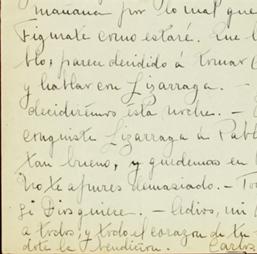 mañana por lo cual que
Figurate como estaré. Que l
blo, parece decidido á tomar
y hablar con Lizarraga. —
decidirémos ésta noche. —
conquiste Lizarraga á Pabl
tan bueno, y quedemos en
No te apures demasiado. — To
si Dios quiere. — Adios, mi
a todos y todo el corazon de tu
dote la bendicion. Carlos